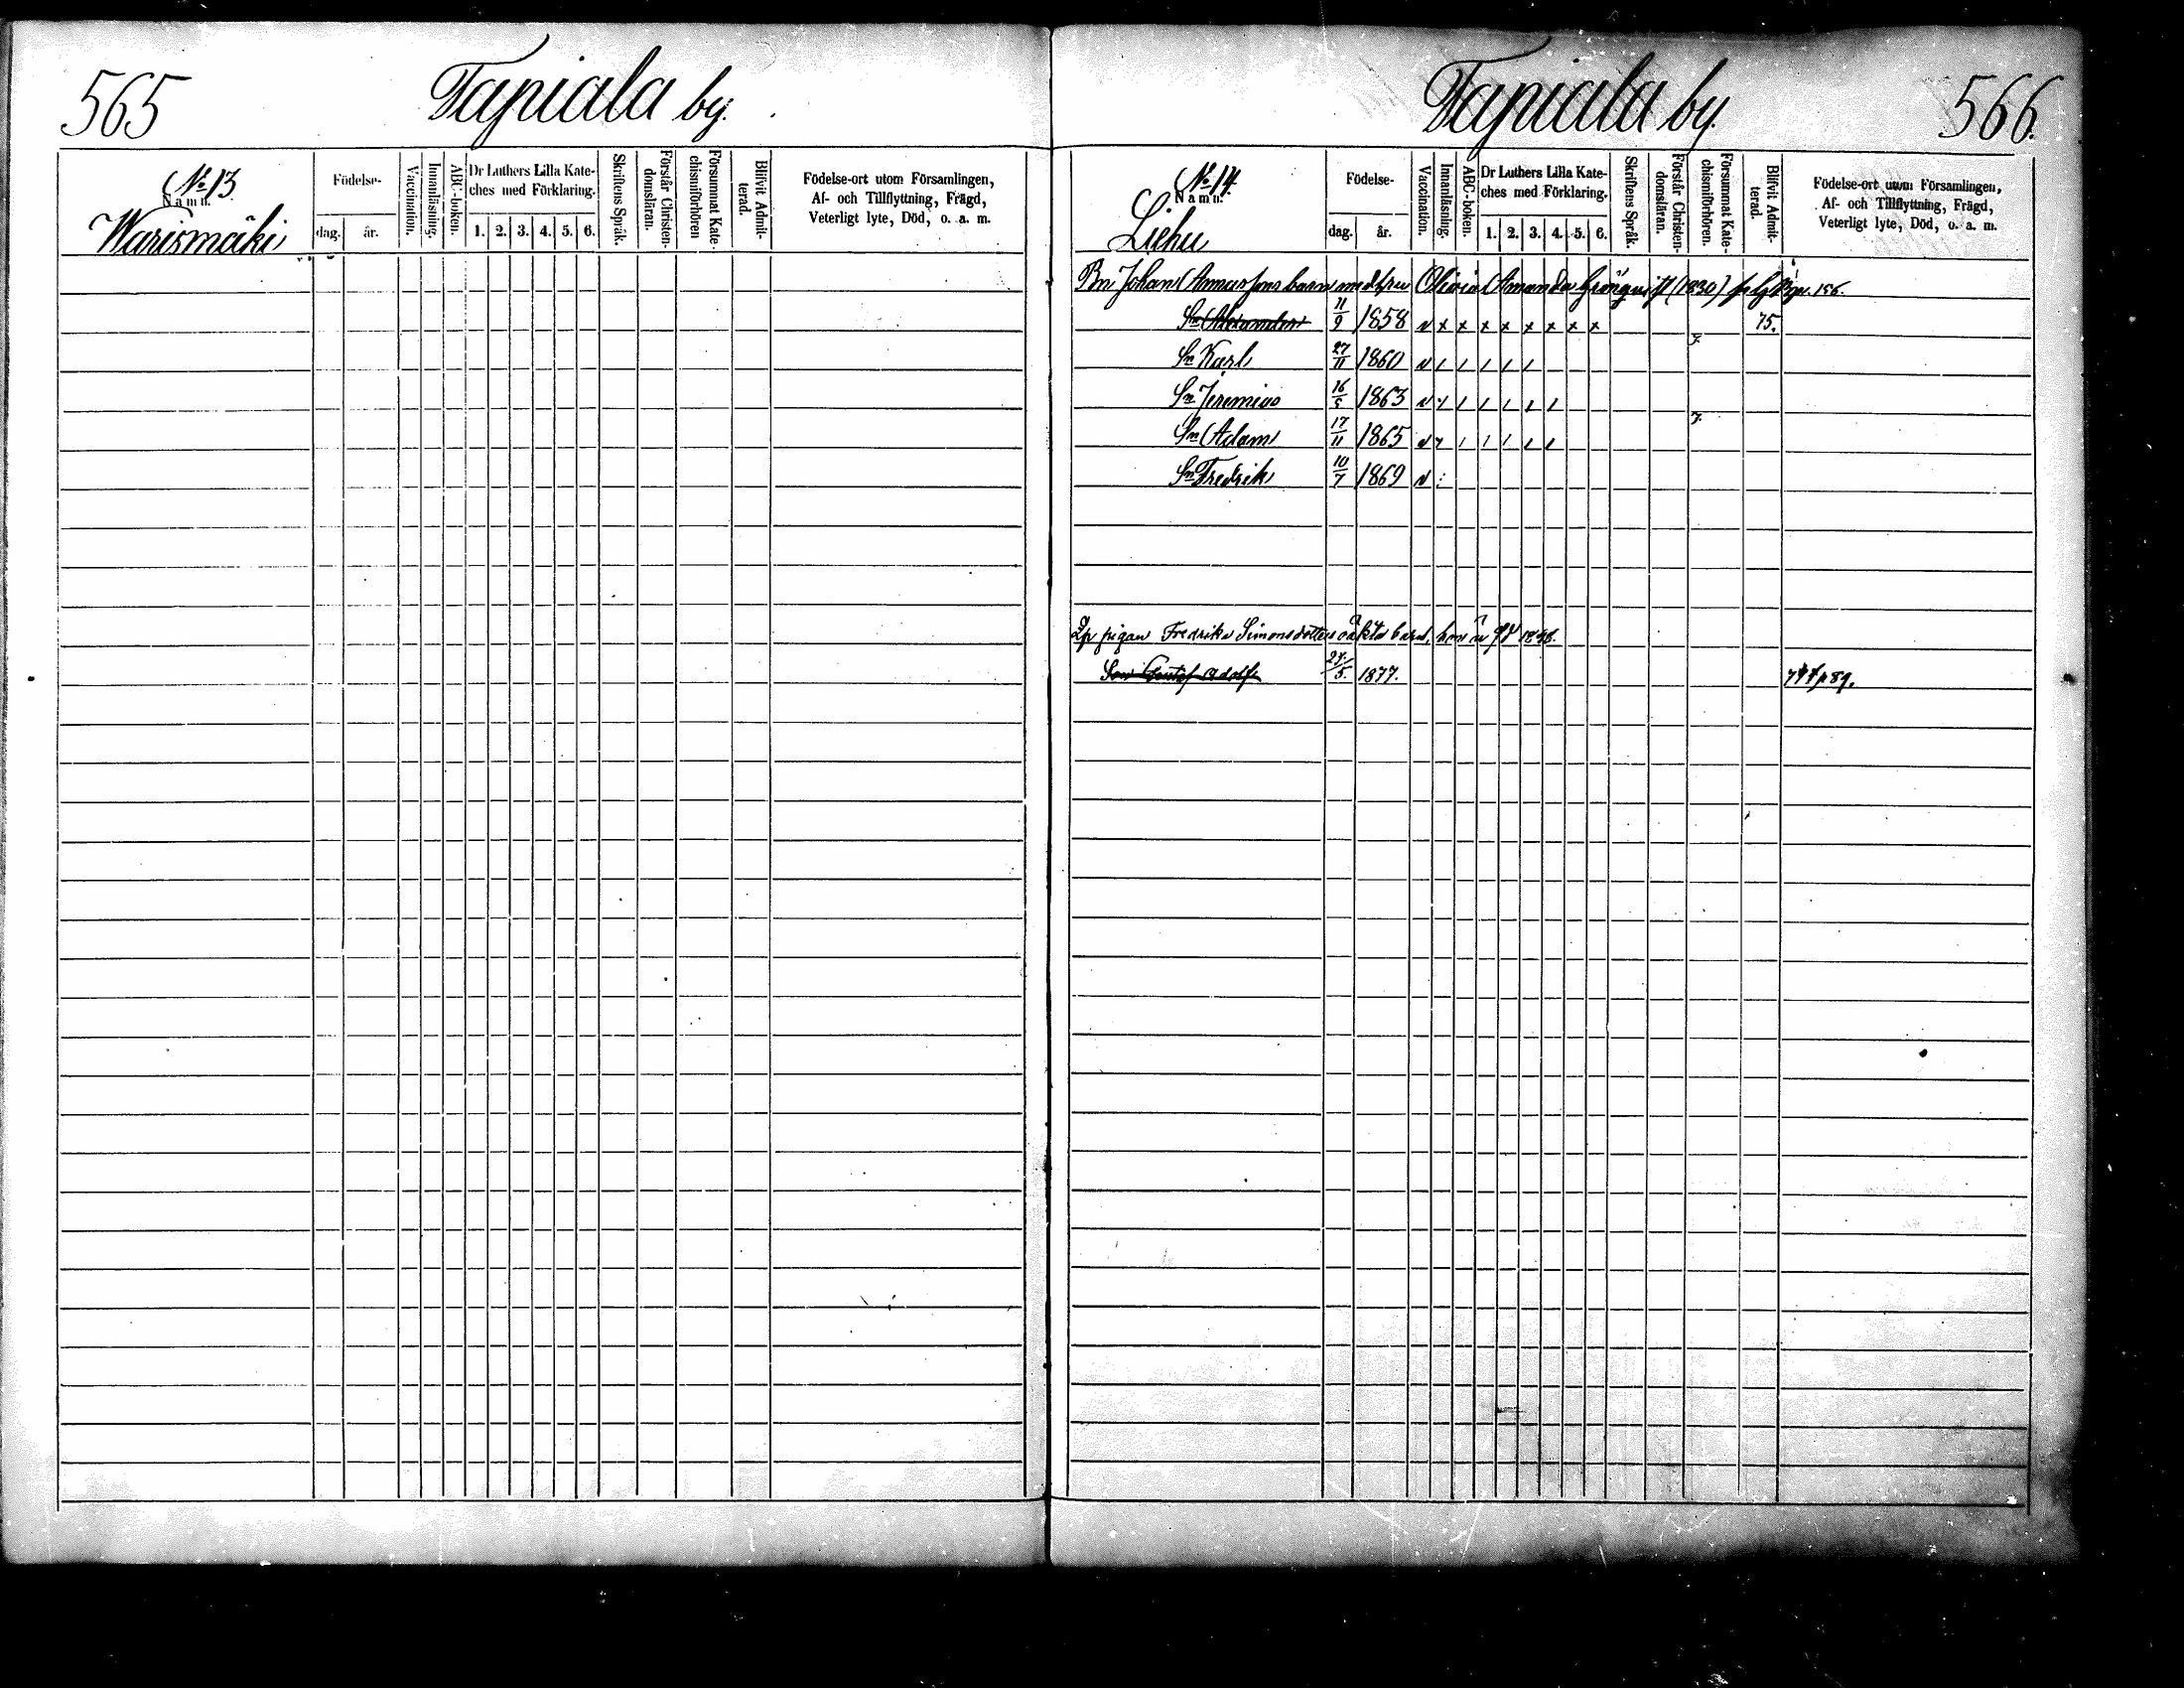 565
Tapiala by.
No 13
Namn.
Warismäki
Födelse-
dag.
år.
Vaccination.
Innanläsning.
ABC-boken.
Dr Luthers Lilla Kate-
ches med Förklaring.
1. 2. 3. 4. 5. 6.
Skriftens Språk.
Förstår Christen-
domsläran.
Försummat Kate-
chismiförhören
Blifvit Admit-
terad.
Födelse-ort utom Församlingen,
Af- och Tillflyttning, Frägd,
Veterligt lyte, Död, o. a. m.
Tapiala by.
566.
No 14.
Namn.
Liehu
Födelse-
dag.
år.
Vaccination.
Innanläsning.
ABC-boken.
Dr Luthers Lilla Kate-
ches med Förklaring.
1. 2. 3. 4. 5. 6.
Skriftens Språk.
Förstår Christen-
domsläran.
Försummat Kate-
chismiförhören.
Blifvit Admit-
terad.
Födelse-ort utom Församlingen,
Af- och Tillflyttning, Frägd,
Veterligt lyte, Död, o. a. m.
Bn Johan barn med hru Olivia Amanda (1830) 156.
Sn Alexander 11/9 1858 v x x x x x x x x 75.
Sn Karl 27/11 1860 v
Sn Jeremias 16/5 1863 v
Sn Adam 17/11 1865 v
Sn Fredrik 10/7 1869 v
pigan Fredrika Simonsdotters oäkta barn, hon är
Son Gustaf Adolf 27/5. 1877. p 89.